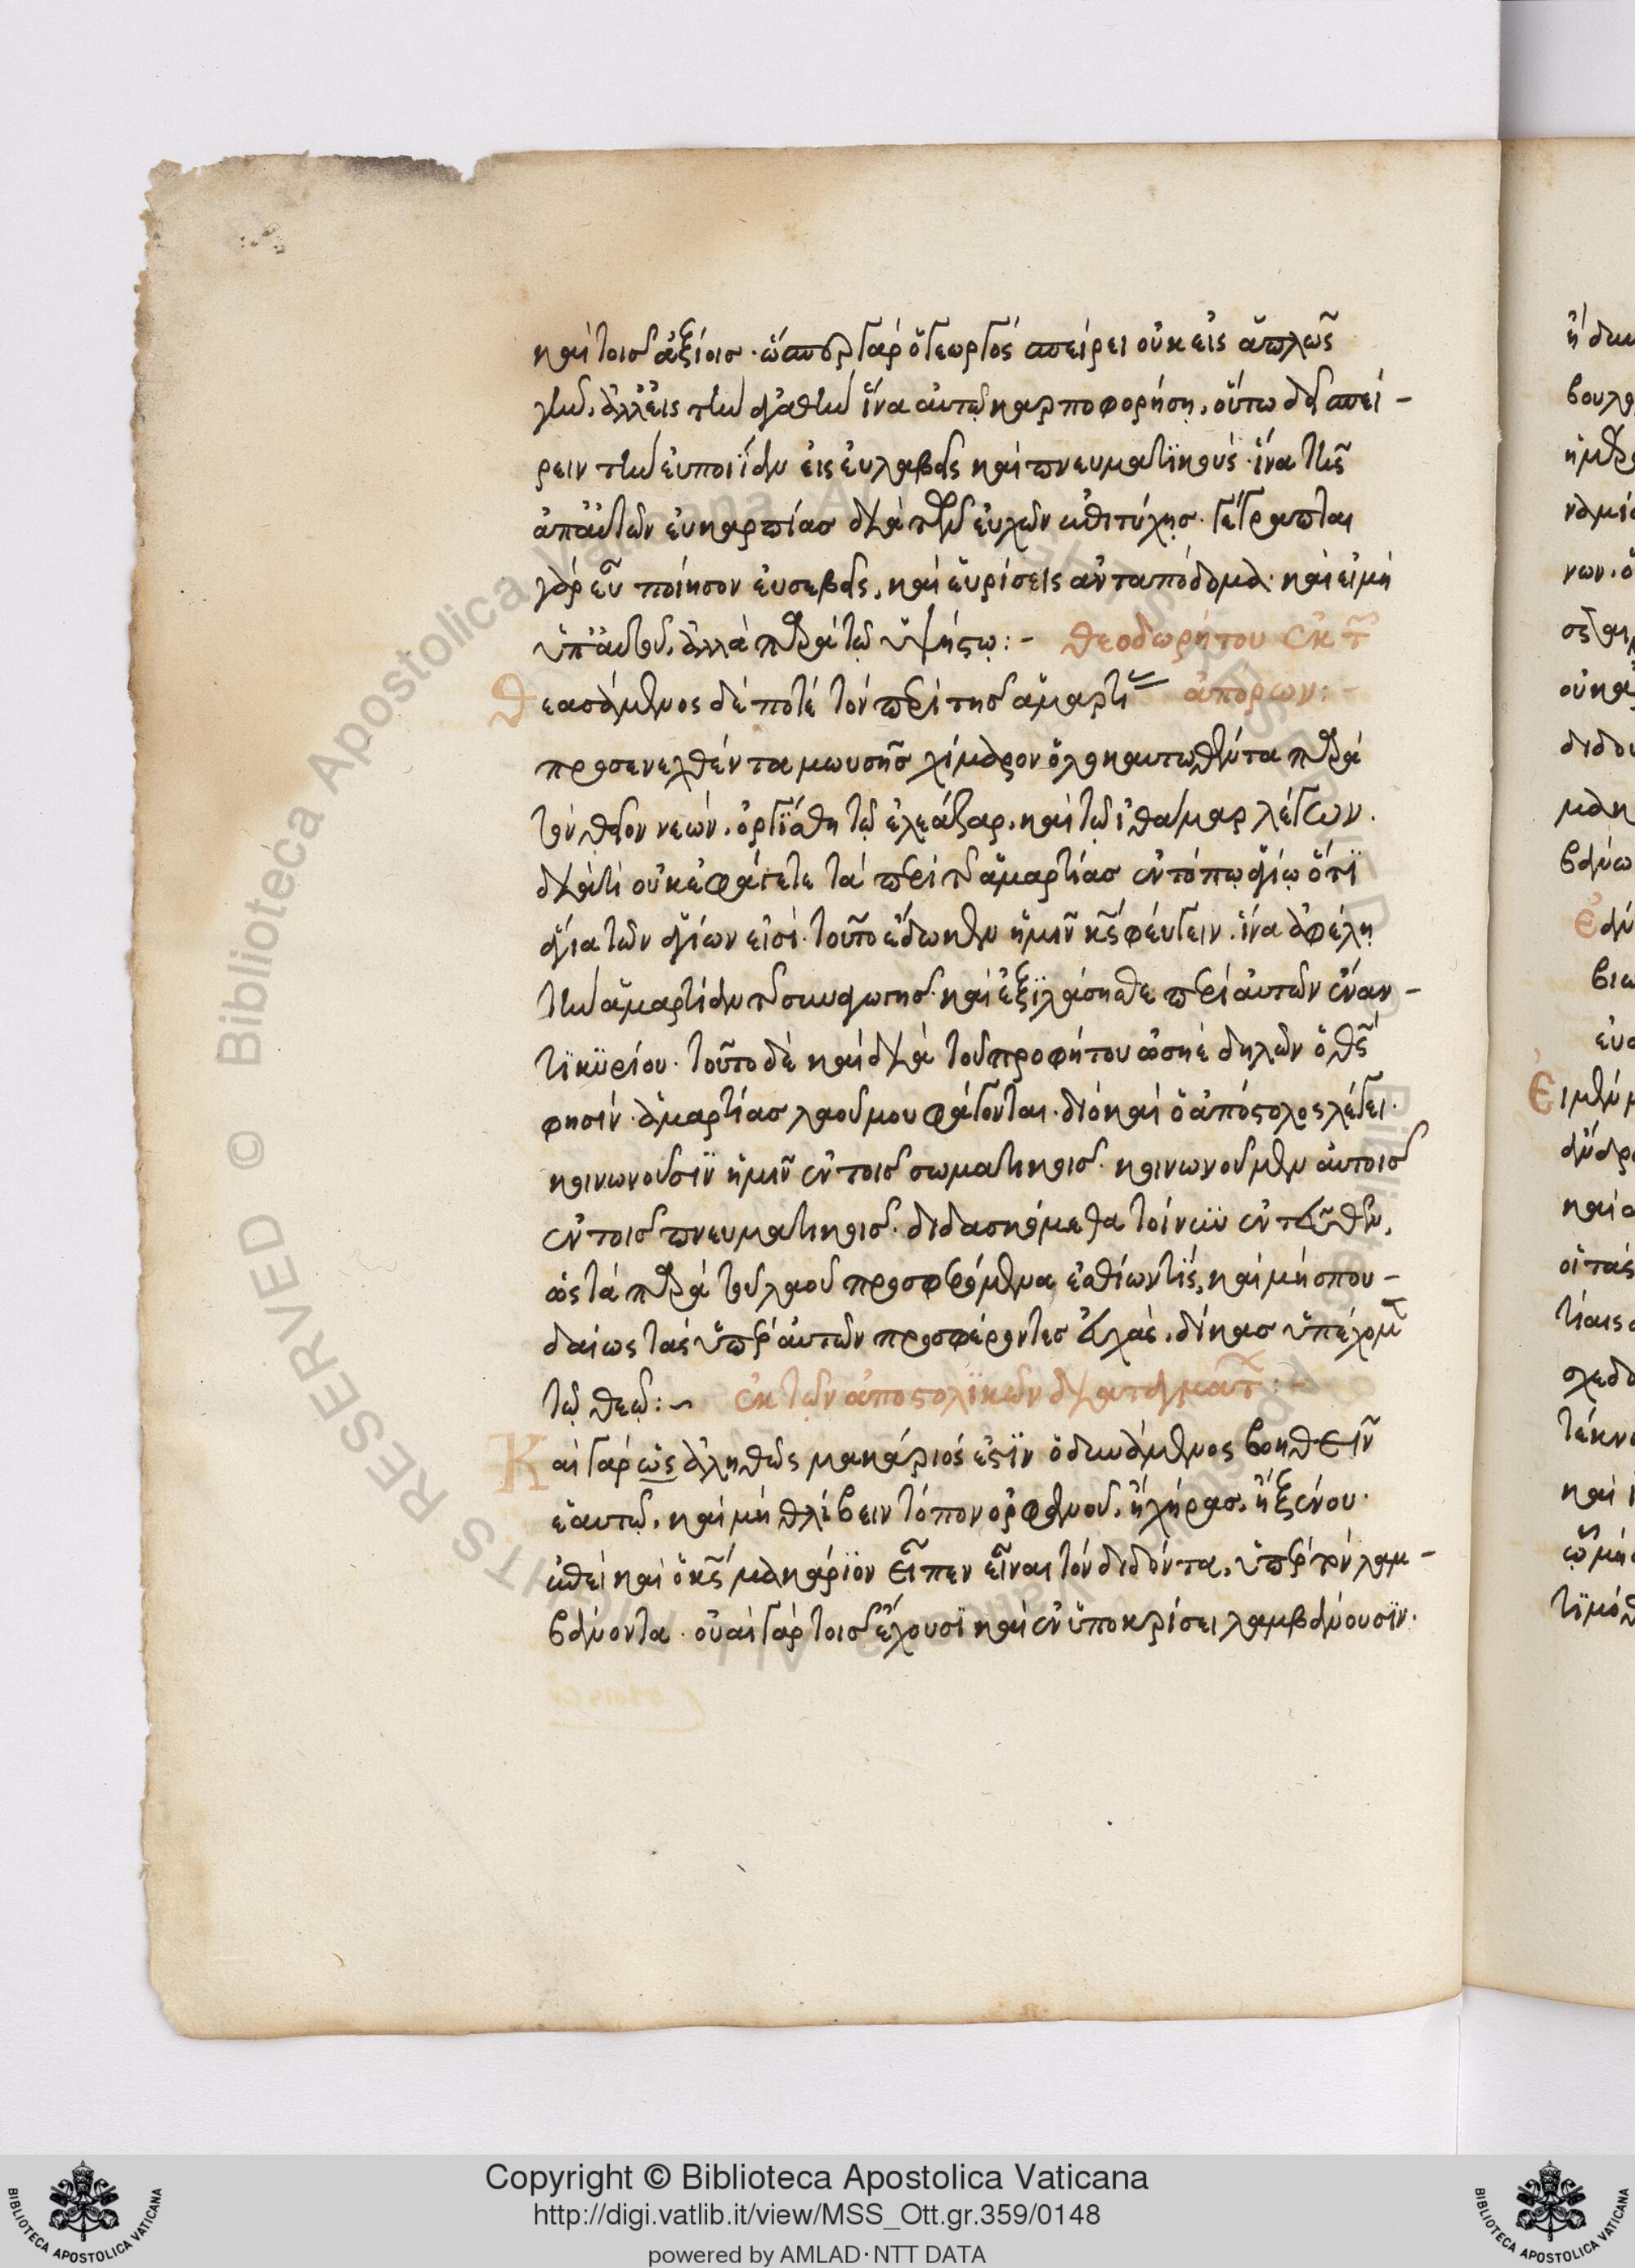 καὶ τοῖς ἀξίοις · ὥσπερ γὰρ ὁ γεωργὸς σπείρει οὐκ εἰς ἁπλῶς
γῆν, ἀλλ' εἰς τὴν ἀγαθὴν ἵνα αὐτῷ καρποφορήσῃ, οὕτω δεῖ σπεί-
ρειν τὴν εὐποιΐαν εἰς εὐλαβεῖς καὶ πνευματϊκοὺς · ἵνα τῆς
ἀπ' αὐτῶν εὐκαρπίας διὰ τῶν εὐχῶν ἐπιτύχῃς · γέγραπται
γὰρ εὖ ποίησον εὐσεβεῖ, καὶ εὑρίσεις ἀνταπόδομα · καὶ εἰ μὴ
ὑπ' αὐτοῦ, ἀλλὰ παρὰ τῷ ὑψήστῳ :- Θεοδωρήτου ἐκ τ
Θεασάμενος δέ ποτε τὸν περὶ τῆς ἁμαρτί ἀπόρων :-
προσενεχθέντα μωυσῆς χίμαρον ὁλοκαυτωθέντα παρὰ
τὸν θεῖον νεών, ὀργϊσθη τῷ ἐλεάζαρ, καὶ τῷ ἰθάμαρ λέγων ·
διὰτὶ οὐκ ἐφάγετε τὰ περὶ τῆς ἁμαρτίας ἐν τόπῳ ἁγίῳ ὅτϊ
ἅγια τῶν ἁγίων εἰσὶ · τοῦτο ἔδωκεν ἡμῖν κς φέυγειν · ἵνα ἀφέλῃ
τὴν ἁμαρτίαν τῆς συναγωγῆς · καὶ ἐξϊλάσησθε περὶ αὐτῶν ἔναν-
τϊ κϋρίου · τοῦτο δὲ καὶ διὰ τοῦ προφήτου ὡσηὲ δηλῶν ὁ θς
φησίν · ἁμαρτίας λαοῦ μου φάγονται · διὸ καὶ ὁ ἀπόστολος λέγει ·
κοινωνοῦσϊν ἡμῖν ἐν τοῖς σωματικοῖς · κοινωνοῦμεν αὐτοῖς
ἐν τοῖς πνευματικοῖς · διδασκόμεθα τοίνϋν ἐντεῦθεν,
ὡς τὰ παρὰ τοῦ λαοῦ προσφερόμενα ἐσθίωντϊς, καὶ μὴ σπου-
δαίως τὰς ὑπὲρ αὐτῶν προσφέροντες εὐχὰς, δίκας ὑπέχομ
τῷ θεῷ :- ἐκ τῶν ἀποστολϊκῶν διαταγμάτ :-
Καὶ γὰρ ὡς ἀληθῶς μακάριός ἐστϊν ὁ δυνάμενος βοηθεῖν
ἑαυτῷ, καὶ μὴ θλίβειν τόπον ὀρφανοῦ, ἢ χήρας, ἢ ξένου ·
ἐπεὶ καὶ ὁ κς μακάρϊον εἶπεν εἶναι τὸν διδόντα, ὑπὲρ τὸν λαμ-
βάνοντα · οὐαὶ γὰρ τοῖς ἔχουσϊ καὶ ἐν ὑποκρίσει λαμβάνουσϊν ·
Copyright © Biblioteca Apostolica Vaticana
http://digi.vatlib.it/view/MSS_Ott.gr.359/0148
powered by AMLAD·NTT DATA